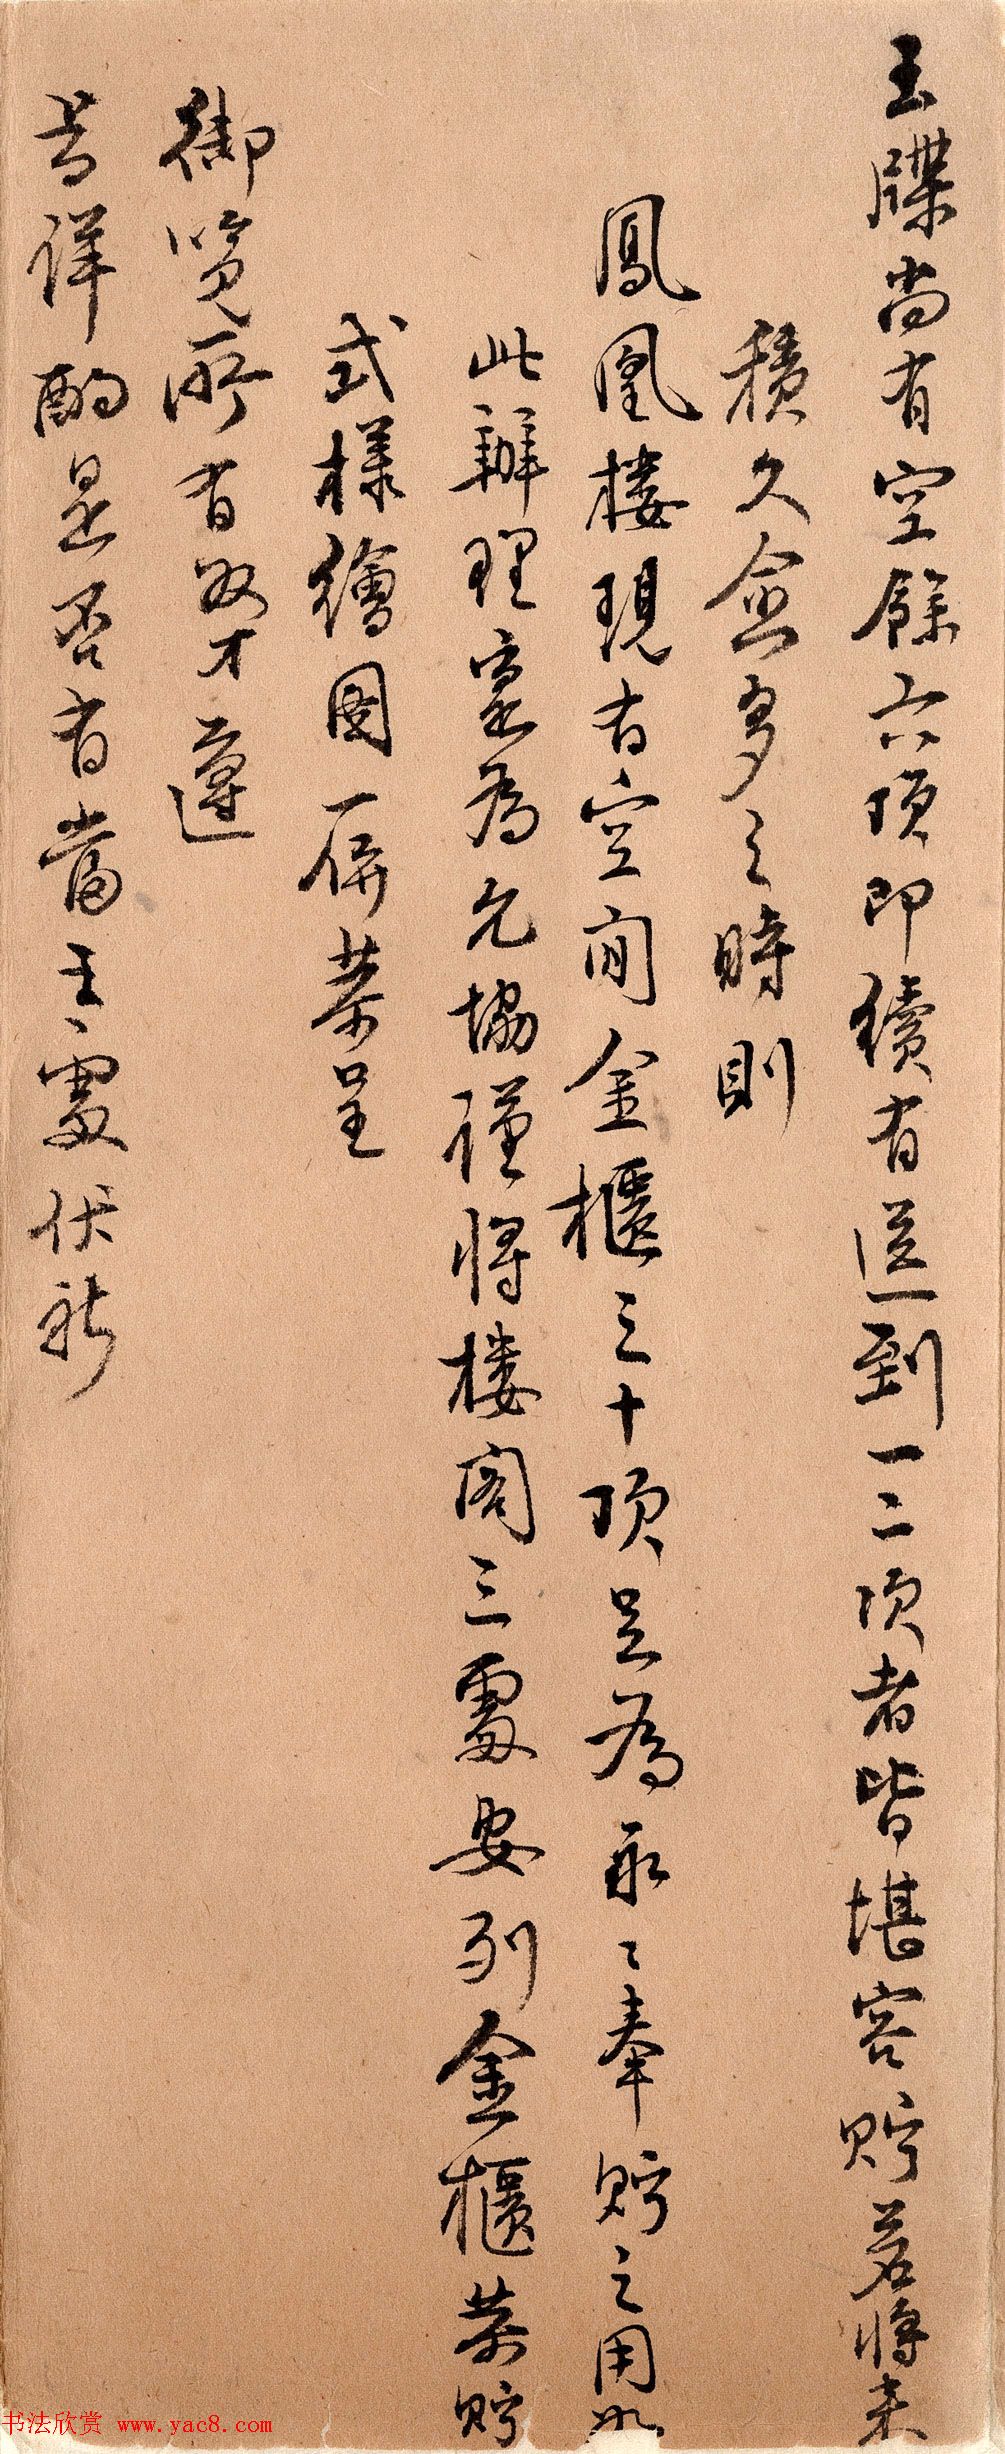 玉牒尚有空餘六頂即續有送到一二次者皆堪容貯若將来
積久愈多之時則
鳳凰樓現有空閒金櫃三十頂足為永〻奉貯之用如
此辦理寔為允協謹將樓閣三處安列金櫃恭貯
式樣繪圖一併恭呈
御覽所有奴才遵
旨詳酌是否有當之處伏祈
书法欣赏 www.yac8.com